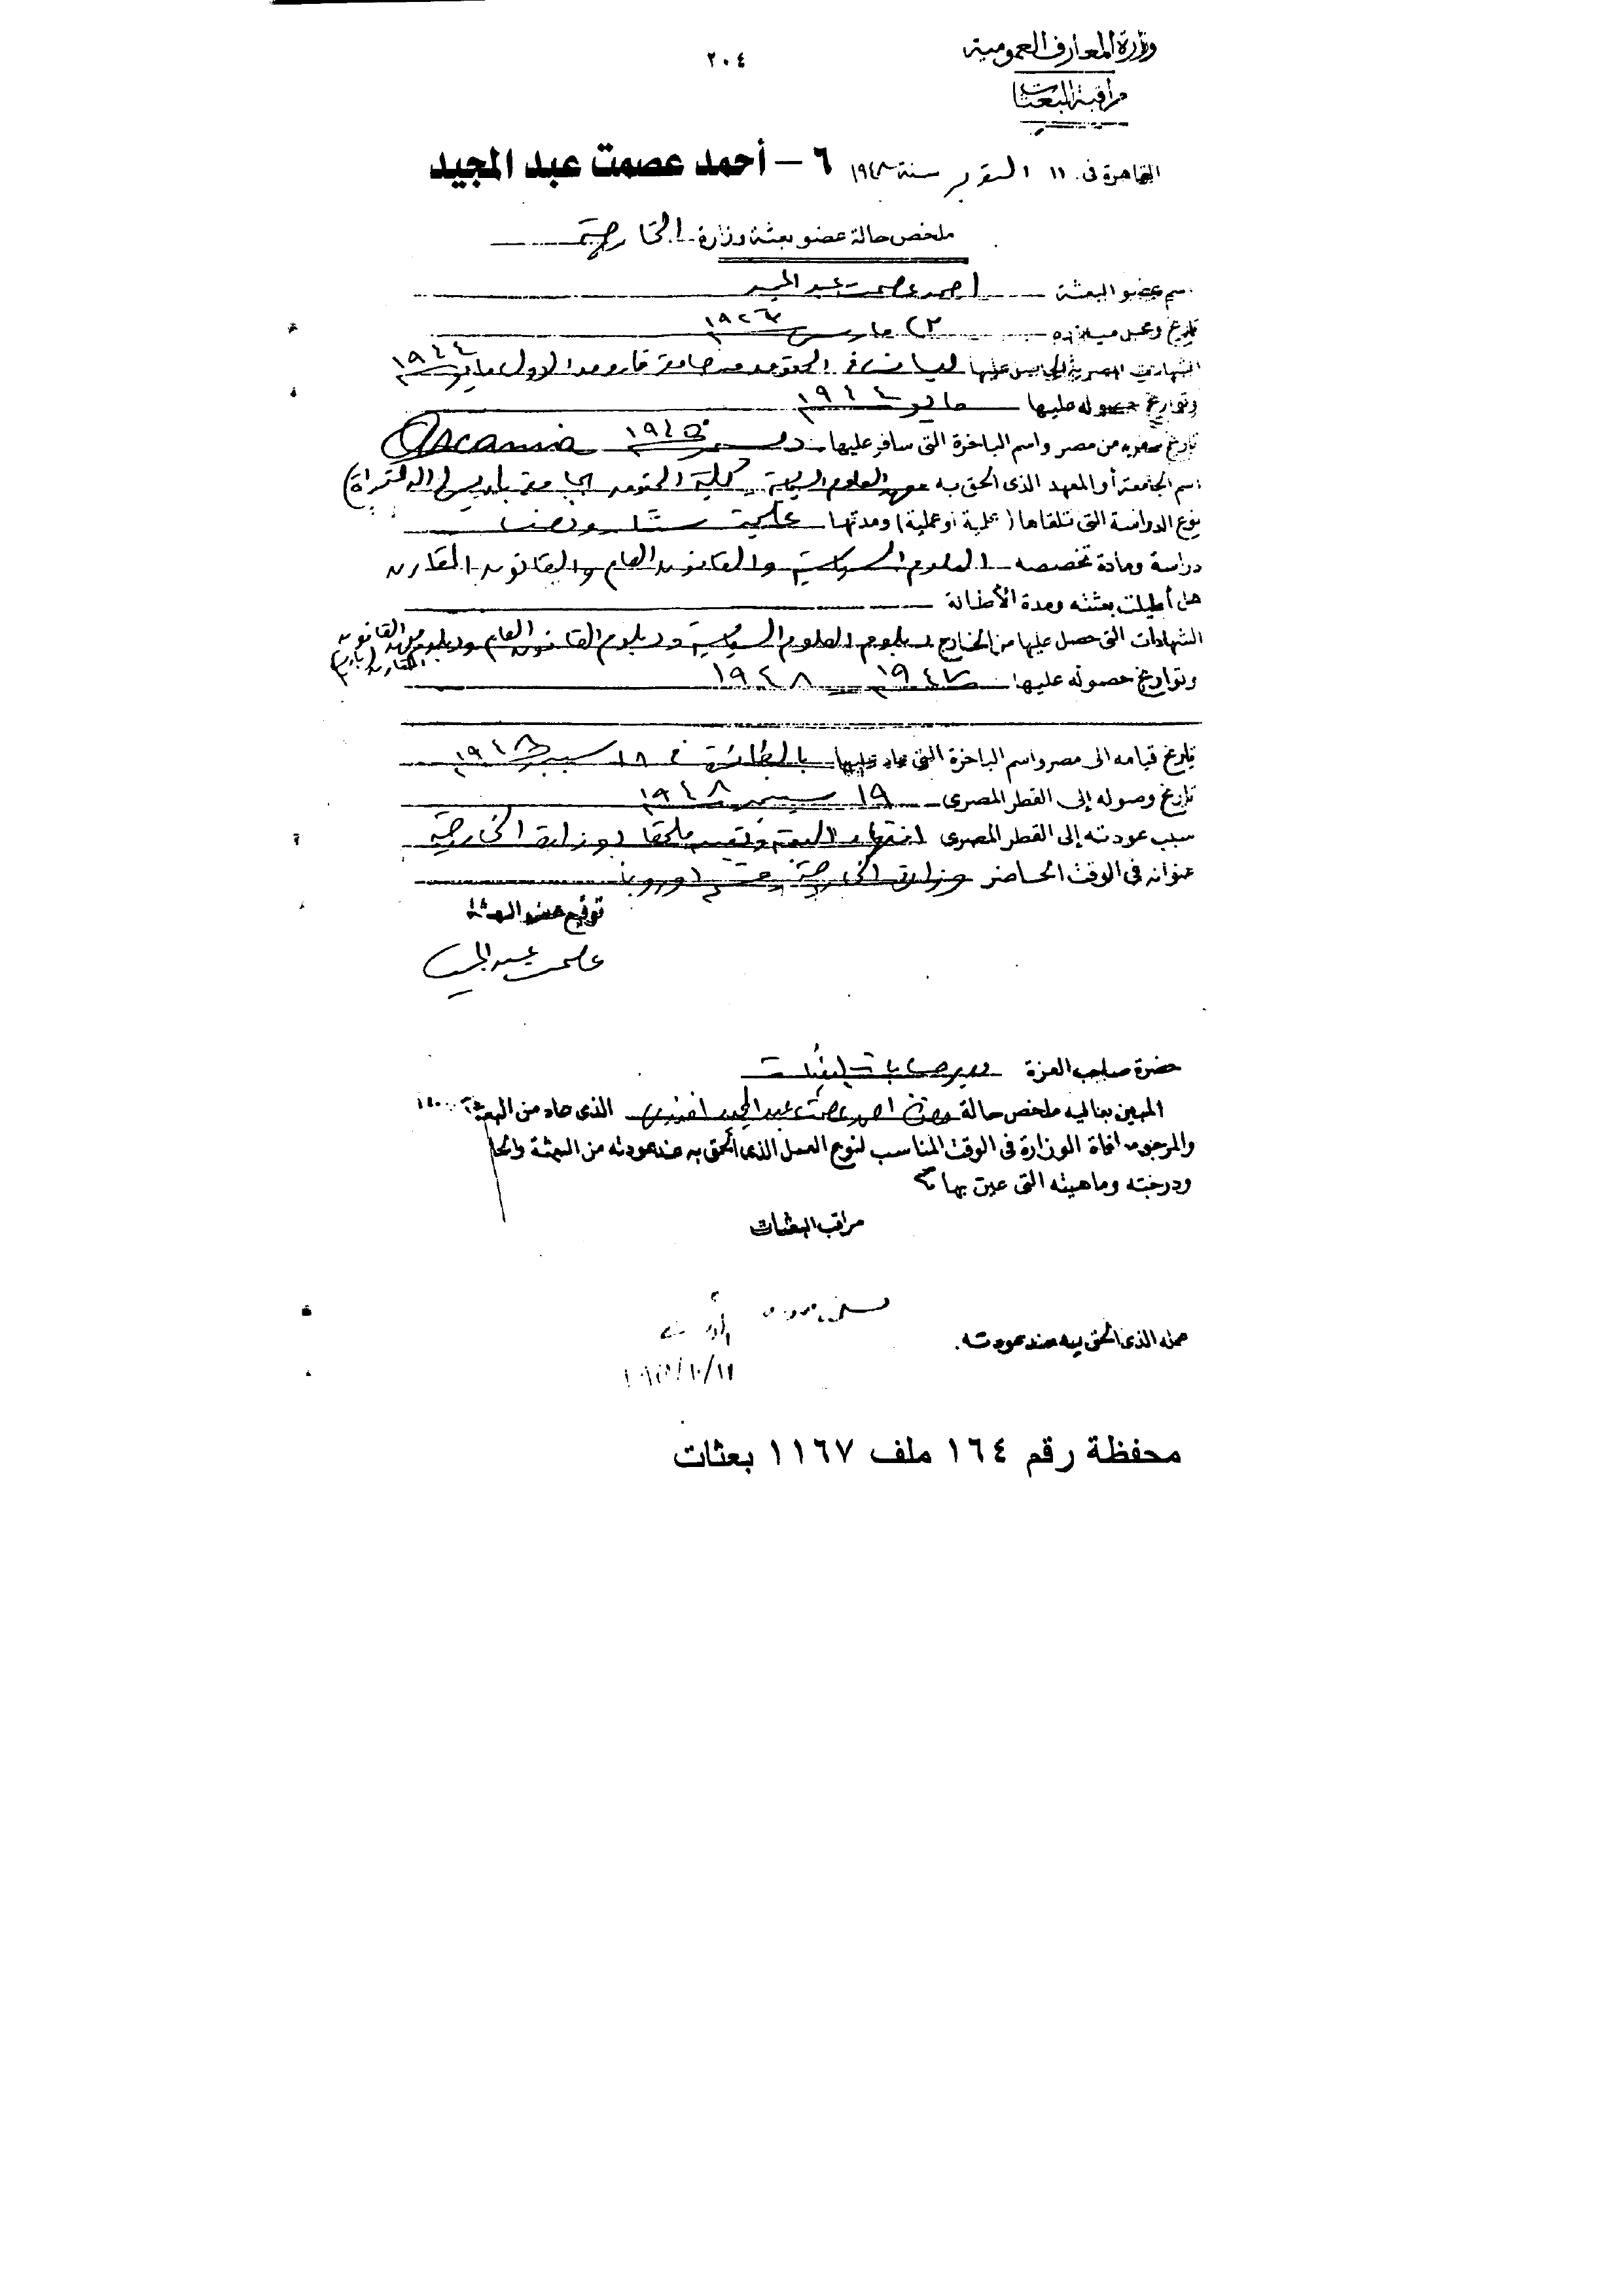 ٢٠٤
وزارة المعارف العمومية
مراقبة البعثات
القاهرة فى ١١ اكتوبر سنة ١٩٤٨
٦ – أحمد عصمت عبد المجيد
ملخص حالة عضو بعثة وزارة الخارجية
اسم عضو البعثة احمد عصمت عبد المجيد
تاريخ ومحل ميلاده ٢٢ مارس
الشهادات المصرية الحاصل عليها ليسانس فى الحقوق من جامعة فاروق الاول مايو ١٩٤٤
وتواريخ حصوله عليها مايو ١٩٤٤
تاريخ سفره من مصر واسم الباخرة التى سافر عليها ديسمبر ١٩٤٥ Ascania
اسم الجامعة أو المعهد الذى الحق به معهد العلوم السياسية كلية الحقوق بجامعة باريس (الدكتوراة)
نوع الدراسة التى تلقاها (علمية أو عملية) ومدتها علمية سنتان ونصف
دراسة ومادة تخصصه العلوم السياسية والقانون العام والقانون المقارن
هل أطيلت بعثته ومدة الأطالة
الشهادات التى حصل عليها من الخارج دبلوم العلوم السياسية ودبلوم القانون العام ودبلوم القانون المقارن
وتواريخ حصوله عليها ١٩٤٧ – ١٩٤٨
تاريخ قيامه الى مصر واسم الباخرة التى عاد عليها بالطائرة فى ١٨ سبتمبر ١٩٤٨
تاريخ وصوله إلى القطر المصرى ١٩ سبتمبر ١٩٤٨
سبب عودته إلى القطر المصرى انتهاء البعثة وتعيينه ملحقا بوزارة الخارجية
عنوانه فى الوقت الحاضر وزارة الخارجية قسم اوروبا
توقيع عضو البعثة
عصمت عبد المجيد
حضرة صاحب العزة مدير حسابات البعثات
المبين بعاليه ملخص حالة حضرة احمد عصمت عبد المجيد افندى الذى عاد من البعثة
والمرجو موافاة الوزارة فى الوقت المناسب لنوع العمل الذى ألحق به عند عودته من البعثة
ودرجته وماهيته التى عين بها
مراقب البعثات
عمله الذى الحق به عند عودته.
محفظة رقم ١٦٤ ملف ١١٦٧ بعثات